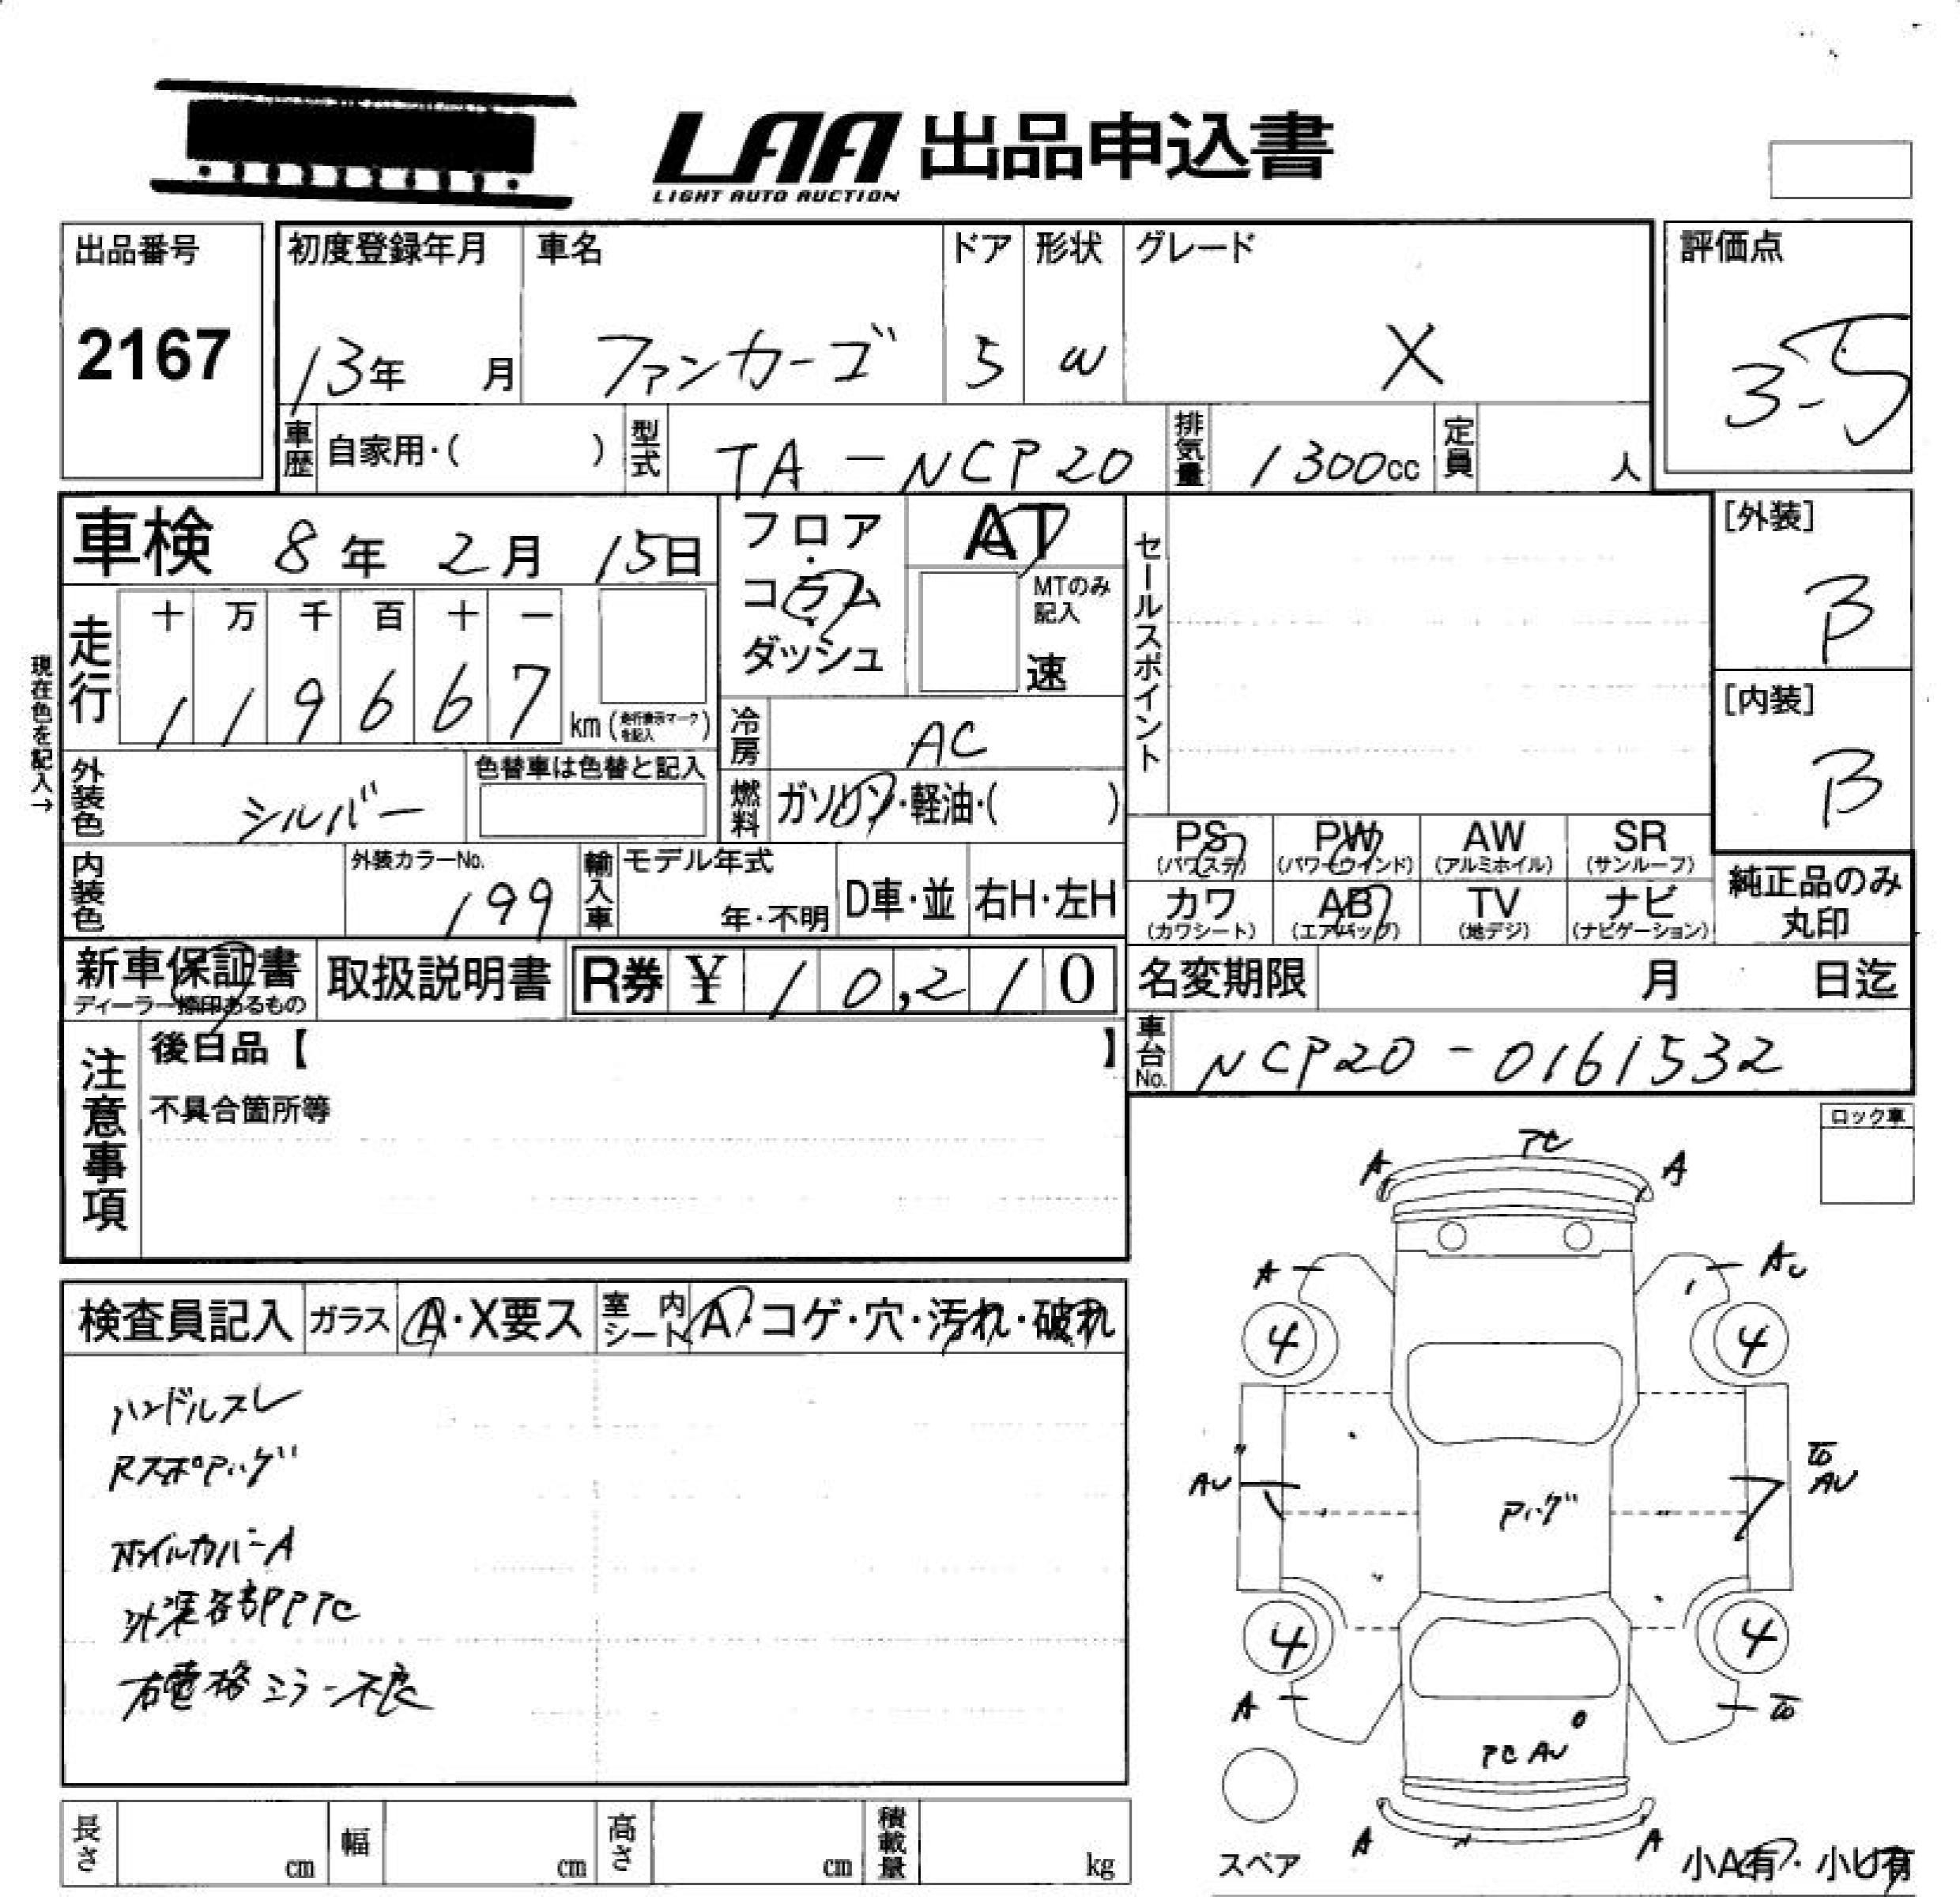 LAA 出品申込書
LIGHT AUTO AUCTION
出品番号
2167
初度登録年月
13年 月
車名
ファンカーゴ
ドア
5
形状
W
グレード
X
評価点
3.5
車歴
自家用・( )
型式
TA-NCP20
排気量
1300cc
定員
人
車検 8年 2月 15日
フロア・コラム・ダッシュ
AT
MTのみ記入
速
セールスポイント
[外装]
B
[内装]
B
現在色を記入→
走行
十 万 千 百 十 一
1 1 9 6 6 7
km (走行表示マークを記入)
冷房
AC
外装色
シルバー
色替車は色替と記入
燃料
ガソリン・軽油・( )
PS (パワステ)
PW (パワーウインド)
AW (アルミホイル)
SR (サンルーフ)
カワ (カワシート)
AB (エアバック)
TV (地デジ)
ナビ (ナビゲーション)
純正品のみ丸印
内装色
外装カラーNo.
199
輸入車
モデル年式
年・不明
D車・並
右H・左H
新車保証書
ディーラー捺印あるもの
取扱説明書
R券 ¥ 10,210
名変期限 月 日迄
注意事項
後日品【 】
不具合箇所等
車台No.
NCP20-0161532
ロック車
検査員記入
ガラス
A・X要ス
室内シート
A・コゲ・穴・汚れ・破れ
ハンドルスレ
RスポPハゲ
ホイルカバーA
外装各部PPTC
右電格ミラー不良
A
A
A
AU
4
4
AU
AU
Pハゲ
4
4
A
AU
A
A
スペア
小A有・小U有
長さ
cm
幅
cm
高さ
cm
積載量
kg